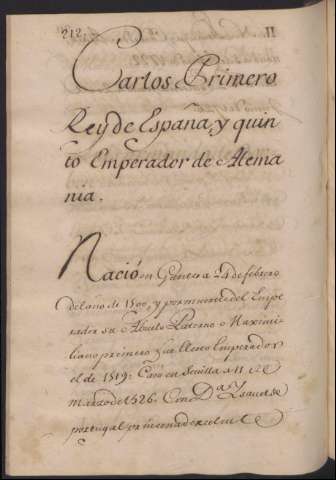 212. II
Carlos Primero
Rey de España, y quin
to Emperador de Alema
nia.
Nació en Gante a 24 de febrero
del año de 1500, y por muerte del Empe
rador su Abuelo Paterno Maximi-
liano primero fue Emperador
el de 1519: Casó en Sevilla a 11 de
Marzo de 1526. Con D.ª Ysavel de
portugal